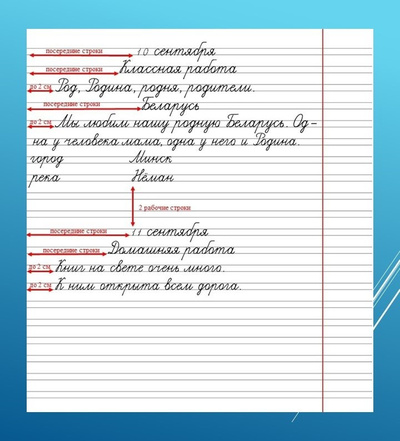 посередине строки 10 сентября
посередине строки Классная работа
до 2 см Род, Родина, родня, родители.
посередине строки Беларусь
до 2 см Мы любим нашу родную Беларусь. Од-
на у человека мама, одна у него и Родина.
город Минск
река Нёман
2 рабочие строки
посередине строки 11 сентября
посередине строки Домашняя работа
до 2 см Книг на свете очень много.
до 2 см К ним открыта всем дорога.